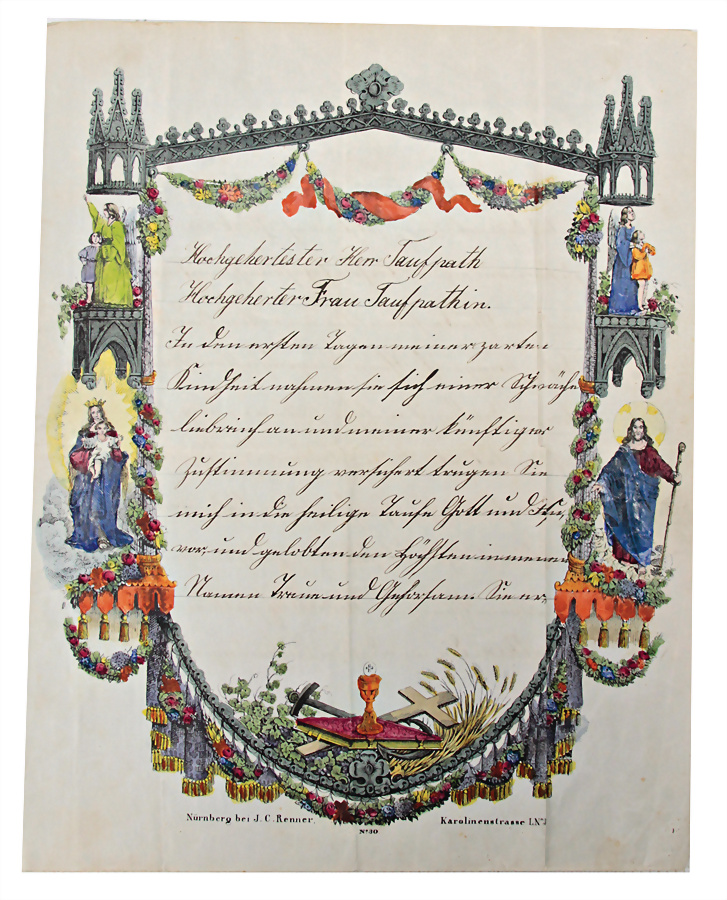 Hochgehertester Herr Taufpath
Hochgeherter Frau Taufpathin.
In den ersten Tagen meiner zarten
Kindheit nahmen sie sich einer Schwäche
liebreich an und meiner künftigen
Zustimmung versichert trugen Sie
mich in die heilige Taufe Gott und
vor und gelobten den Höchsten in meinen
Namen Treue und Gehorsam. Sie er
Nürnberg bei J. C. Renner.
Karolinenstrasse
No 30